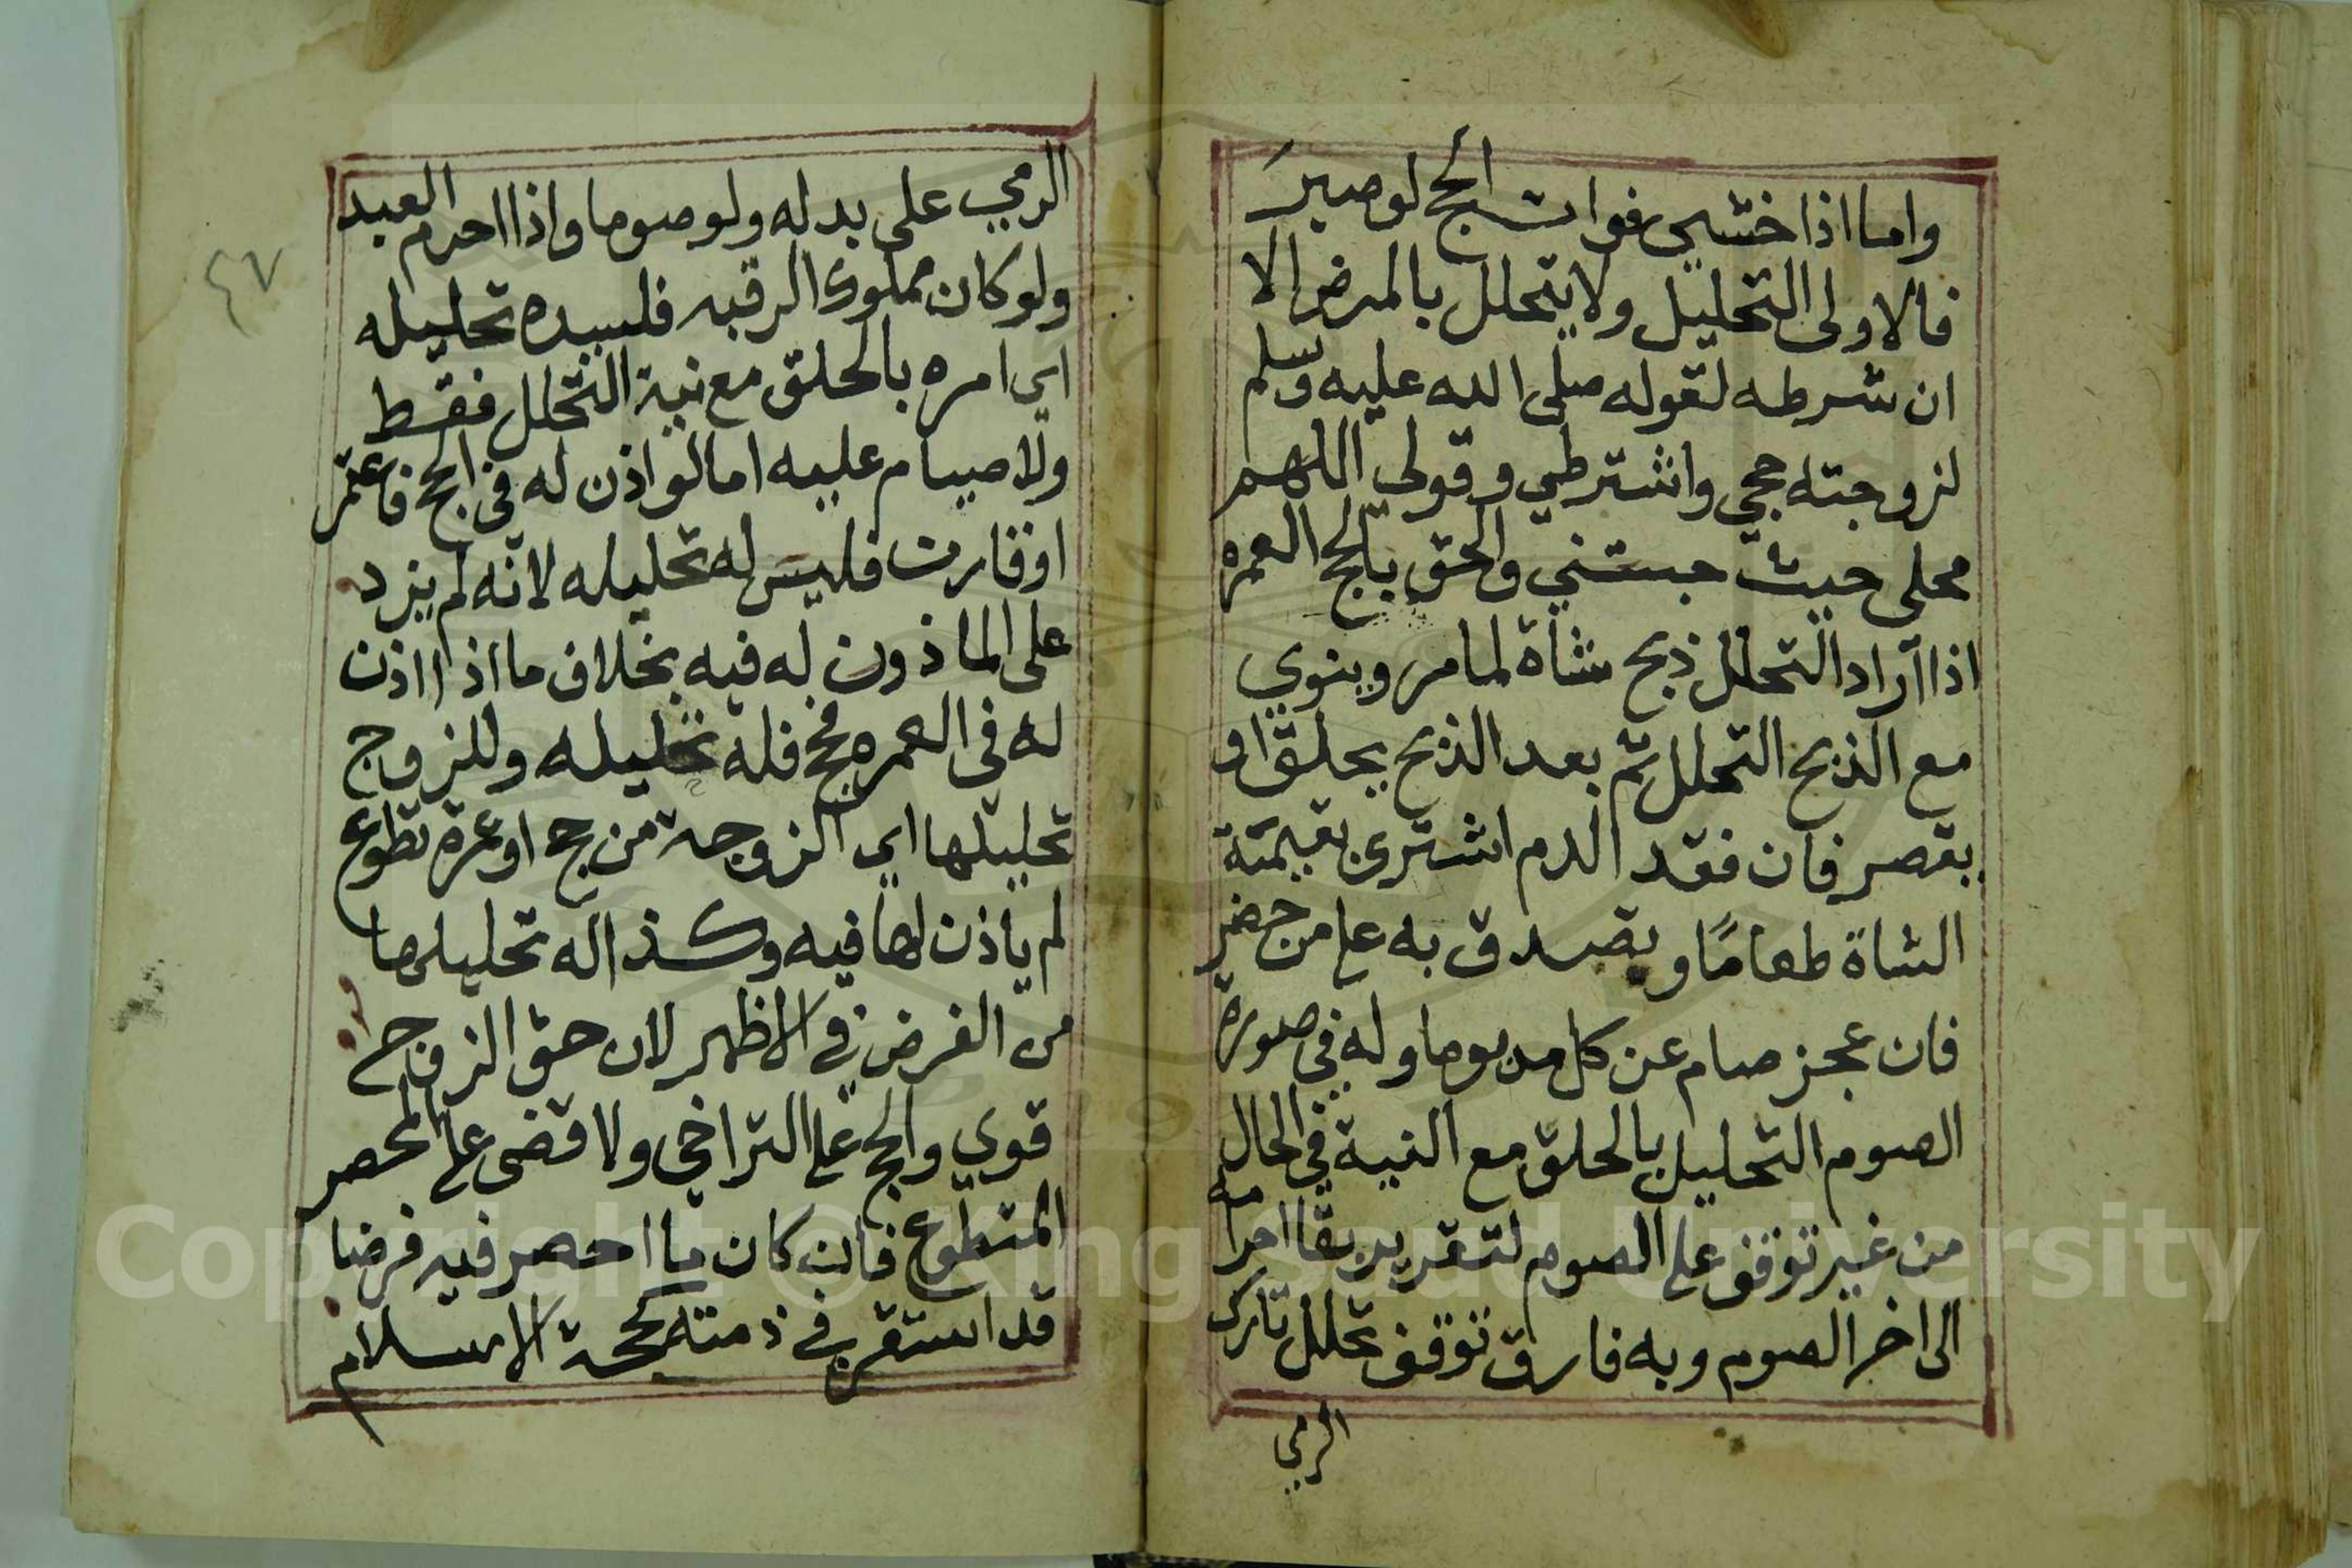 واما اذا خشي فوات الحج لو صبر
فالاولى التحليل ولا يتحلل بالمرض الا
ان شرطه لقوله صلى الله عليه وسلم
لزوجته حجي واشترطي وقولي اللهم
محلي حيث حبستني والحق بالحج العمره
اذا آراد التحلل ذبح شاة لمامر وينوي
مع الذبح التحلل ثم بعد الذبح يحلق او
يقصر فان فقد الدم اشترى بقيمتة
الشاة طعامًا ويتصدق به على من حضر
فان عجز صام عن كل مد يوما وله في صورة
الصوم التحليل بالحلق مع النية في الحال
من غير توقف على الصوم لتقرير بقا احرامه
الى اخر الصوم وبه فارق توقف تحلل تارك
الرمي
الرمي على بدله ولو صوما واذا احرم العبد
ولو كان مملوك الرقبه فلسيده تحليله
اي امره بالحلق مع نية التحلل فقط
ولا صيام عليه اما لو اذن له في الحج فاعتمر
او قارن فليس له تحليله لانه لم يزد
على الماذون له فيه بخلاف ما اذا اذن
له في العمره فحج فله تحليله وللزوج
تحليلها اي الزوجة من حج او عمرة تطوع
لم ياذن لها فيه وكذا له تحليلها
من الفرض في الاظهر لان حق الزوج
قوي والحج على التراخي ولا قضى على المحصر
المتطوع فان كان ما احصر فيه فرضا
قد استقر في ذمته كحجة الاسلام
٤٧
Copyright © King Saud University